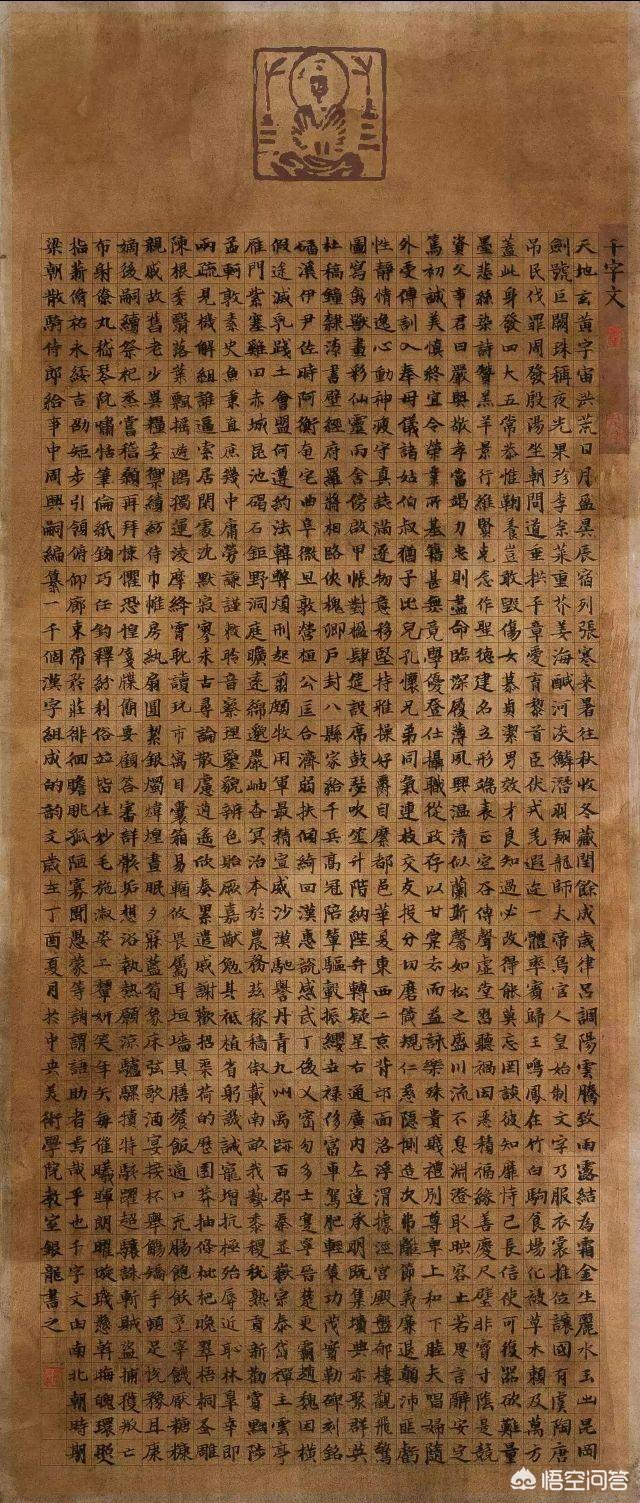 千字文
天地玄黃宇宙洪荒日月盈昃辰宿列張寒來暑往秋收冬藏閏餘成歲律呂調陽雲騰致雨露結為霜金生麗水玉出昆岡
劍號巨闕珠稱夜光果珍李柰菜重芥姜海鹹河淡鱗潛羽翔龍師火帝鳥官人皇始制文字乃服衣裳推位讓國有虞陶唐
吊民伐罪周發殷湯坐朝問道垂拱平章愛育黎首臣伏戎羌遐迩一體率賓歸王鳴鳳在竹白駒食場化被草木賴及萬方
蓋此身發四大五常恭惟鞠養豈敢毀傷女慕貞潔男效才良知過必改得能莫忘罔談彼短靡恃己長信使可復器欲難量
墨悲絲染詩贊羔羊景行維賢克念作聖德建名立形端表正空谷傳聲虛堂習聽禍因惡積福緣善慶尺璧非寶寸陰是競
資父事君曰嚴與敬孝當竭力忠則盡命臨深履薄夙興溫清似蘭斯馨如松之盛川流不息淵澄取映容止若思言辭安定
篤初誠美慎終宜令榮業所基籍甚無竟學優登仕攝職從政存以甘棠去而益詠樂殊貴賤禮別尊卑上和下睦夫唱婦隨
外受傅訓入奉母儀諸姑伯叔猶子比兒孔懷兄弟同氣連枝交友投分切磨箴規仁慈隱惻造次弗離節義廉退顛沛匪虧
性靜情逸心動神疲守真志滿逐物意移堅持雅操好爵自縻都邑華夏東西二京背邙面洛浮渭據涇宮殿盤郁樓觀飛驚
圖寫禽獸畫彩仙靈丙舍傍啟甲帳對楹肆筵設席鼓瑟吹笙升階納陛弁轉疑星右通廣內左達承明既集墳典亦聚群英
杜稿鐘隸漆書壁經府羅將相路俠槐卿戶封八縣家給千兵高冠陪輦驅轂振纓世祿侈富車駕肥輕策功茂實勒碑刻銘
磻溪伊尹佐時阿衡奄宅曲阜微旦孰營桓公匡合濟弱扶傾綺回漢惠說感武丁俊乂密勿多士寔寧晉楚更霸趙魏困橫
假途滅虢踐土會盟何遵約法韓弊煩刑起翦頗牧用軍最精宣威沙漠馳譽丹青九州禹跡百郡秦並嶽宗泰岱禪主雲亭
雁門紫塞雞田赤城昆池碣石鉅野洞庭曠遠綿邈嚴岫杳冥治本於農務茲稼穡俶載南畝我藝黍稷稅熟貢新勸賞黜陟
孟軻敦素史魚秉直庶幾中庸勞謙謹敕聆音察理鑒貌辨色貽厥嘉猷勉其祗植省躬譏誡寵增抗極殆辱近恥林皋幸即
兩疏見機解組誰逼索居閑處沈默寂寥求古尋論散慮逍遙欣奏累遣戚謝歡招渠荷的歷園莽抽條枇杷晚翠梧桐蚤雕
陳根委翳落葉飄搖遊鵾獨運凌摩絳霄耽讀玩市寓目囊箱易輶攸畏屬耳垣墻具膳餐飯適口充腸飽飫烹宰饑厭糟糠
親戚故舊老少異糧妾禦績紡侍巾帷房紈扇圓潔銀燭煒煌晝眠夕寐藍筍象床弦歌酒宴接杯舉觴矯手頓足悅豫且康
嫡後嗣續祭祀烝嘗稽顙再拜悚懼恐惶箋牒簡要顧答審詳骸垢想浴執熱願涼驢騾犢特駭躍超驤誅斬賊盜捕獲叛亡
布射僚丸嵇琴阮嘯恬筆倫紙鈞巧任釣釋紛利俗並皆佳妙毛施淑姿工顰妍笑年矢每催曦暉朗曜璇璣懸斡晦魄環照
指薪修祜永綏吉劭矩步引領俯仰廊廟束帶矜莊徘徊瞻眺孤陋寡聞愚蒙等誚謂語助者焉哉乎也千字文由南北朝時期
梁朝散騎侍郎給事中周興嗣編纂一千個漢字組成的韵文歲在丁酉夏月於中央美術學院教室銀龍書之
悟空问答